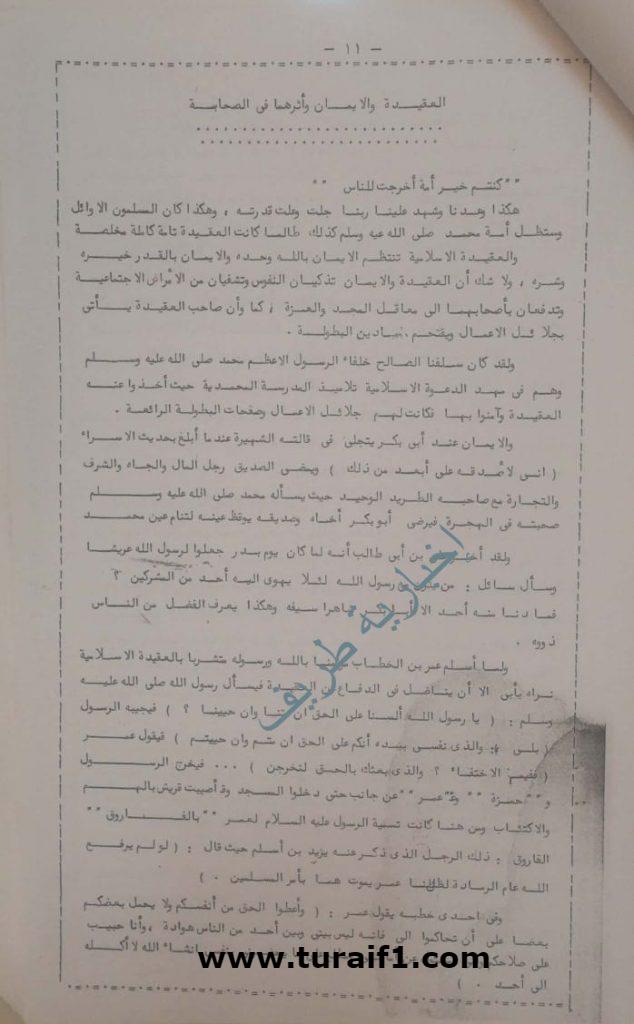 - ١١ -
العقيدة والايمان وأثرهما فى الصحابة
" كنتم خير أمة أخرجت للناس "
هكذا وعدنا وشهد علينا ربنا جلت وعلت قدرته ، وهكذا كان المسلمون الاوائل
وستظل أمة محمد صلى الله عيه وسلم كذلك طالما كانت العقيدة تامة كاملة مخلصة
والعقيدة الاسلامية تنتظم الايمان بالله وحده والايمان بالقدر خيره
وشره ، ولا شك أن العقيدة والايمان تذكيان النفوس وتشفيان من الأمراض الاجتماعية
وتدفعان بأصحابهما الى معاقل المجد والعزة ، كما وأن صاحب العقيدة يأتى
بجلائل الاعمال ويقتحم ميادين البطولة .
ولقد كان سلفنا الصالح خلفاء الرسول الاعظم محمد صلى الله عليه وسلم
وهم فى مهد الدعوة الاسلامية تلاميذ المدرسة المحمدية حيث أخذوا عنه
العقيدة وآمنوا بها فكانت لهم جلائل الاعمال وصفحات البطولة الرائعة .
والايمان عند أبى بكر يتجلى فى قالته الشهيرة عندما أبلغ بحديث الاسراء
( انى لأصدقه على أبعد من ذلك ) ويمضى الصديق رجل المال والجاه والشرف
والتجارة مع صاحبه الطريد الوحيد حيث يسأله محمد صلى الله عليه وسلم
صحبته فى الهجرة فيرضى أبو بكر أخاه وصديقه يوقظ عينه لتنام عين محمد
ولقد بن أبى طالب أنه لما كان يوم بدر جعلوا لرسول الله عريشا
وسأل سائل : من رسول الله لئلا يهوى اليه أحد من المشركين ؟
فما دنا منه أحد الا أبو بكر شاهرا سيفه وهكذا يعرف الفضل من الناس
ذووه .
ولما أسلم عمر بن الخطاب بالله ورسوله متشربا بالعقيدة الاسلامية
نراه يأبى الا أن يناضل فى الدفاع عن العقيدة فيسأل رسول الله صلى الله عليه
وسلم : ( يا رسول الله ألسنا على الحق ان متنا وان حيينا ؟ ) فيجيبه الرسول
( بلى : والذى نفسى بيده أنكم على الحق ان متم وان حييتم ) فيقول عمر
( ففيم الاختفاء ؟ والذى بعثك بالحق لنخرجن ) ... فيخرج الرسول
و " حمزة " و " عمر " عن جانب حتى دخلوا المسجد وقد أصيبت قريش بالهم
والاكتئاب ومن هنا كانت تسمية الرسول عليه السلام لعمر " بالفاروق "
الفاروق : ذلك الرجل الذى ذكر عنه يزيد بن أسلم حيث قال : ( لو لم يرفع
الله عام الرمادة لظننا عمر يموت هما بأمر المسلمين . )
وفى احدى خطبه يقول عمر : ( وأعطوا الحق من أنفسكم ولا يحمل بعضكم
بعضا على أن تحاكموا الى فانه ليس بينى وبين أحد من الناس هوادة ، وأنا حبيب
على صلاحكم انشاء الله لا أكله
الى أحد . )
اخبارية طريف
www.turaif1.com